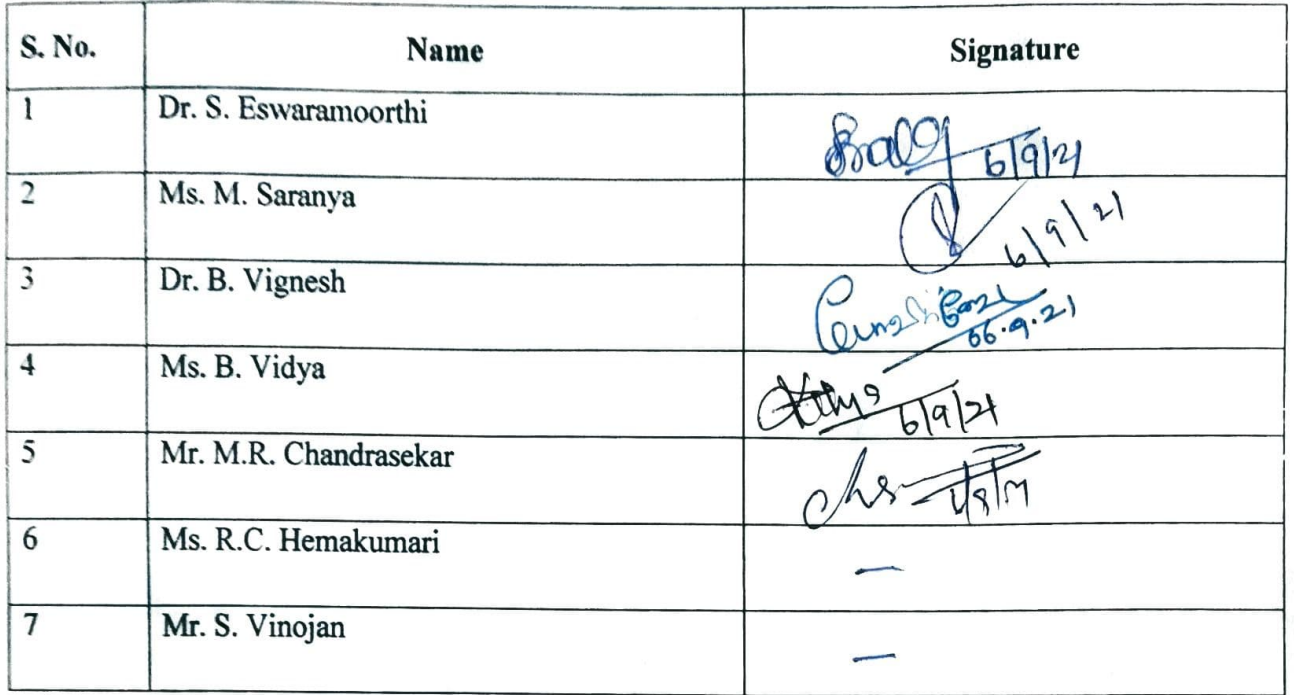 S. No. Name Signature
1 Dr. S. Eswaramoorthi 6/9/21
2 Ms. M. Saranya 6/9/21
3 Dr. B. Vignesh 06.9.21
4 Ms. B. Vidya 6/9/21
5 Mr. M.R. Chandrasekar
6 Ms. R.C. Hemakumari —
7 Mr. S. Vinojan —